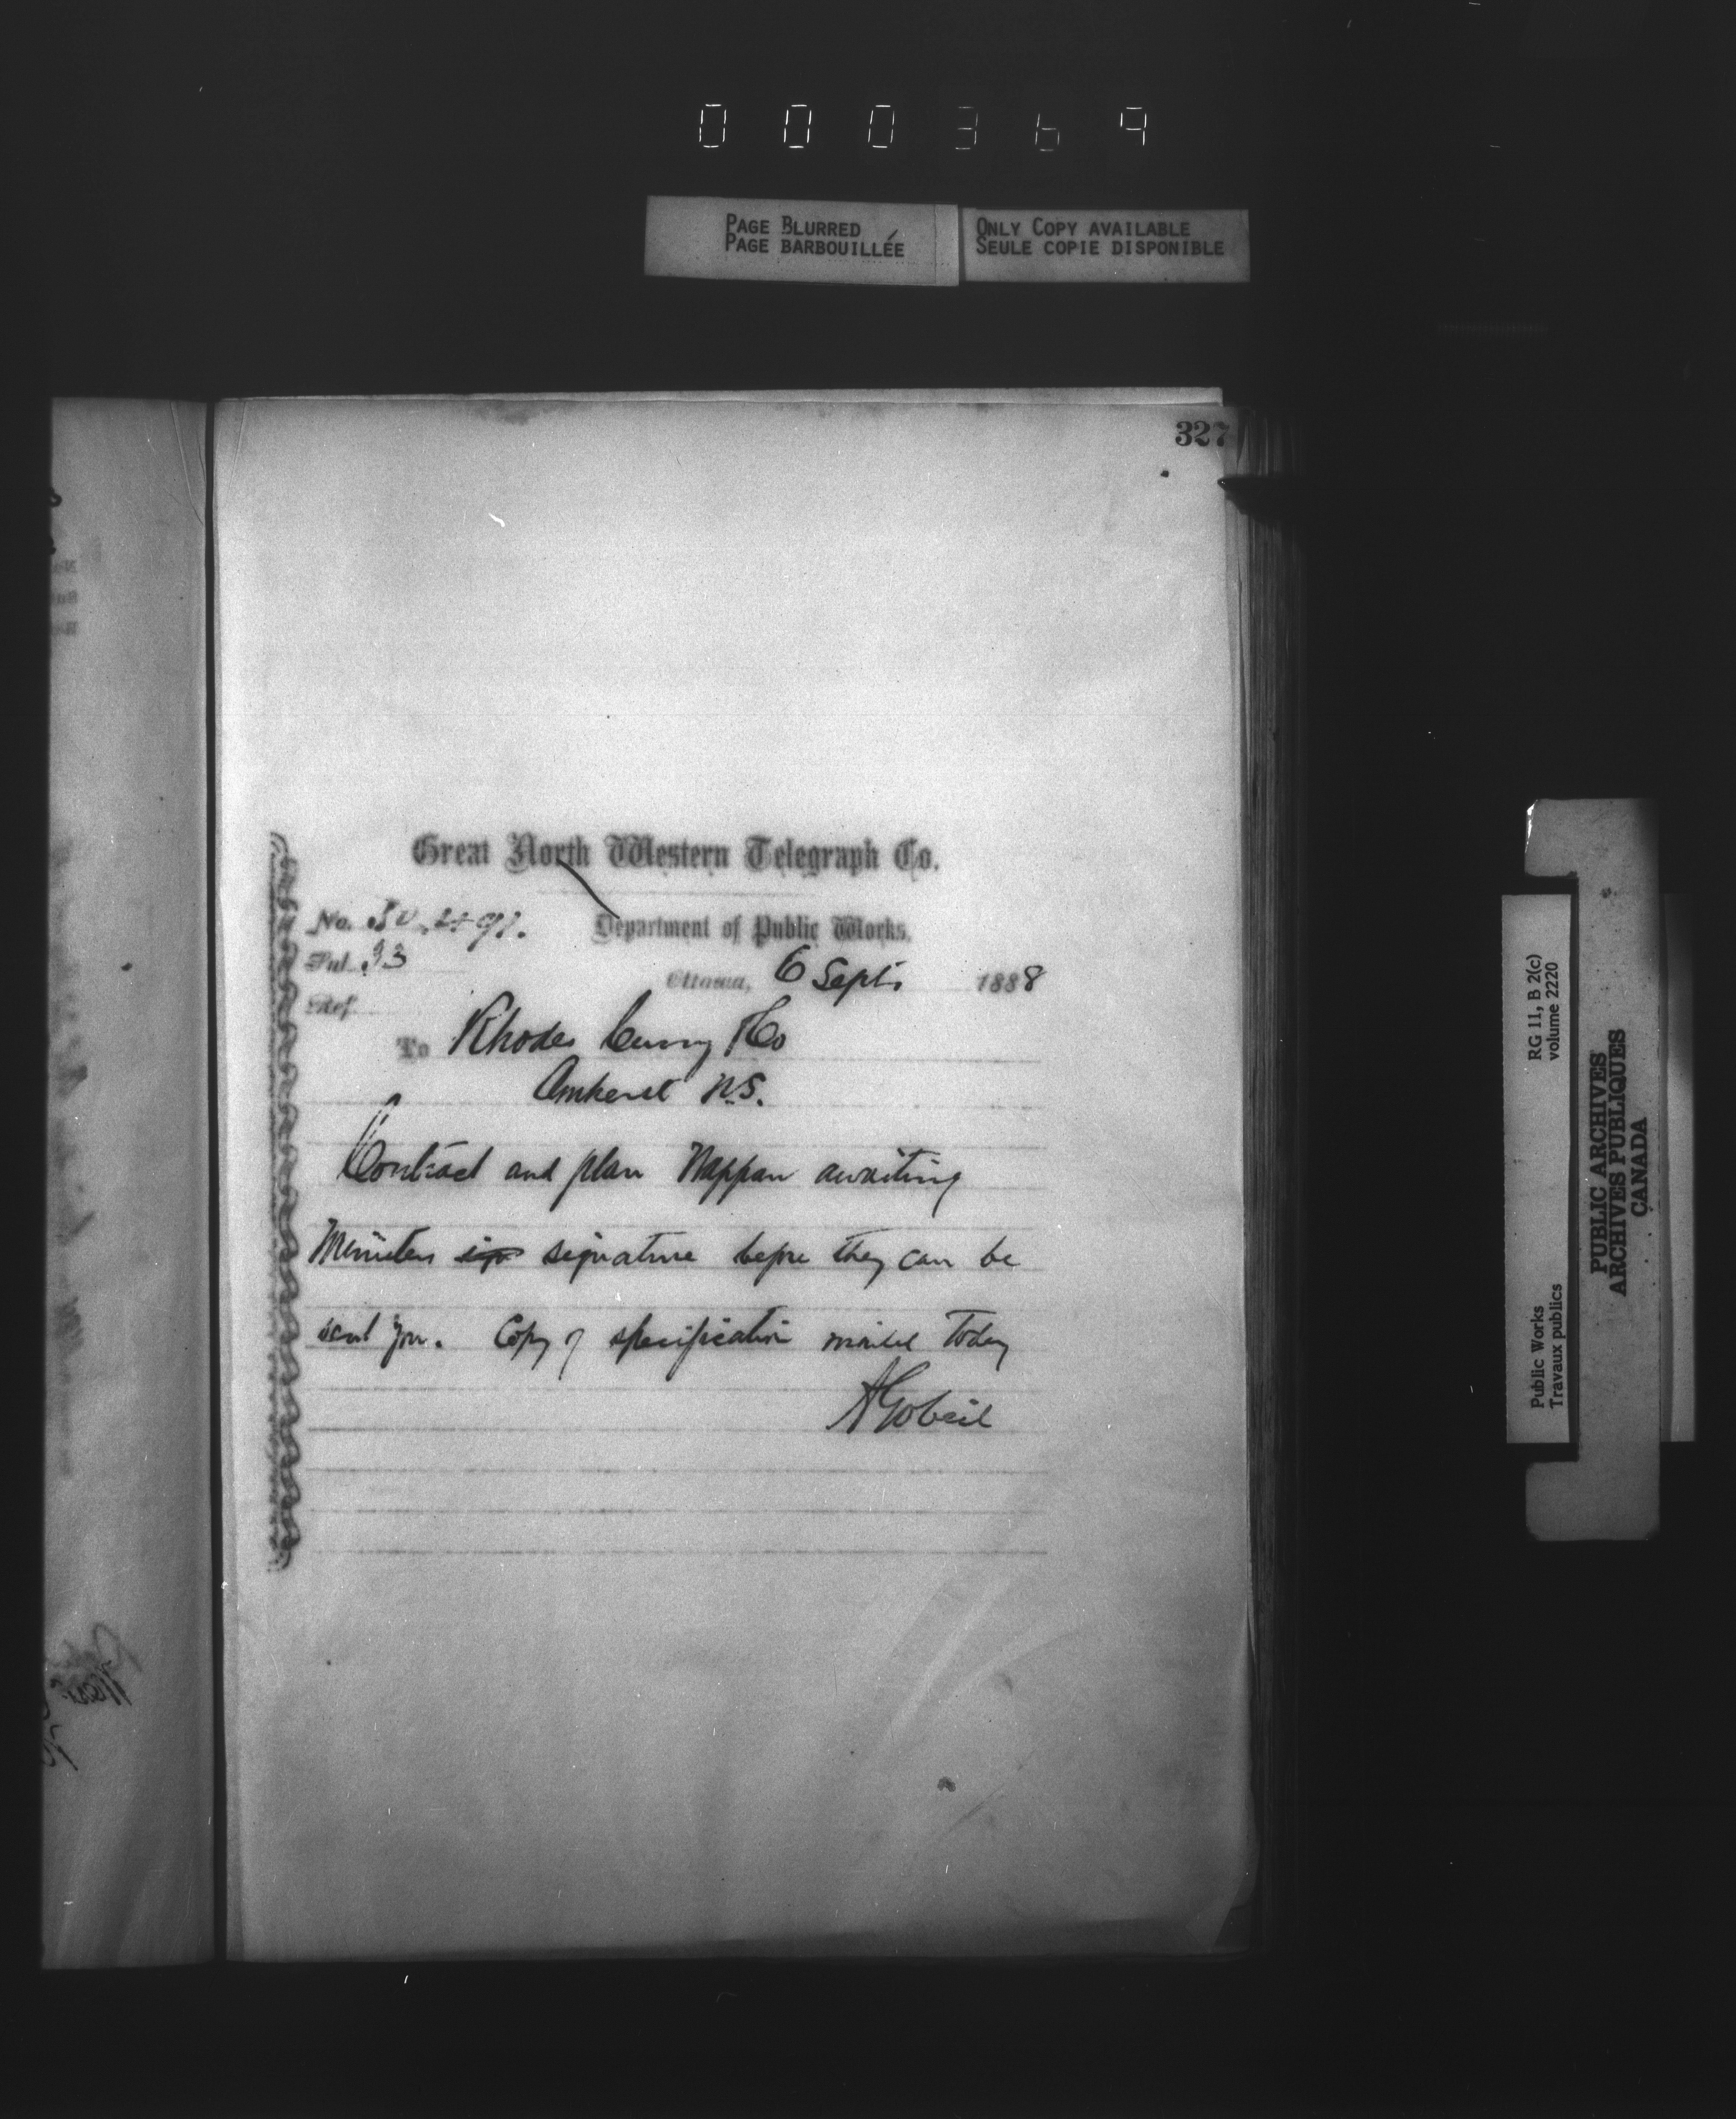 000369
PAGE BLURRED
PAGE BARBOUILLÉE
ONLY COPY AVAILABLE
SEULE COPIE DISPONIBLE
327
Great North Western Telegraph Co.
No.
Department of Public Works.
Sub. 33
Ottawa, 6 Sept. 1888
Ref.
To Rhodes Curry & Co
Amherst N.S.
Contract and plan Nappan awaiting
Ministers sig signature before they can be
sent you. Copy of specification mailed today
A Gobeil
RG 11, B 2(c)
volume 2220
Public Works
Travaux publics
PUBLIC ARCHIVES
ARCHIVES PUBLIQUES
CANADA